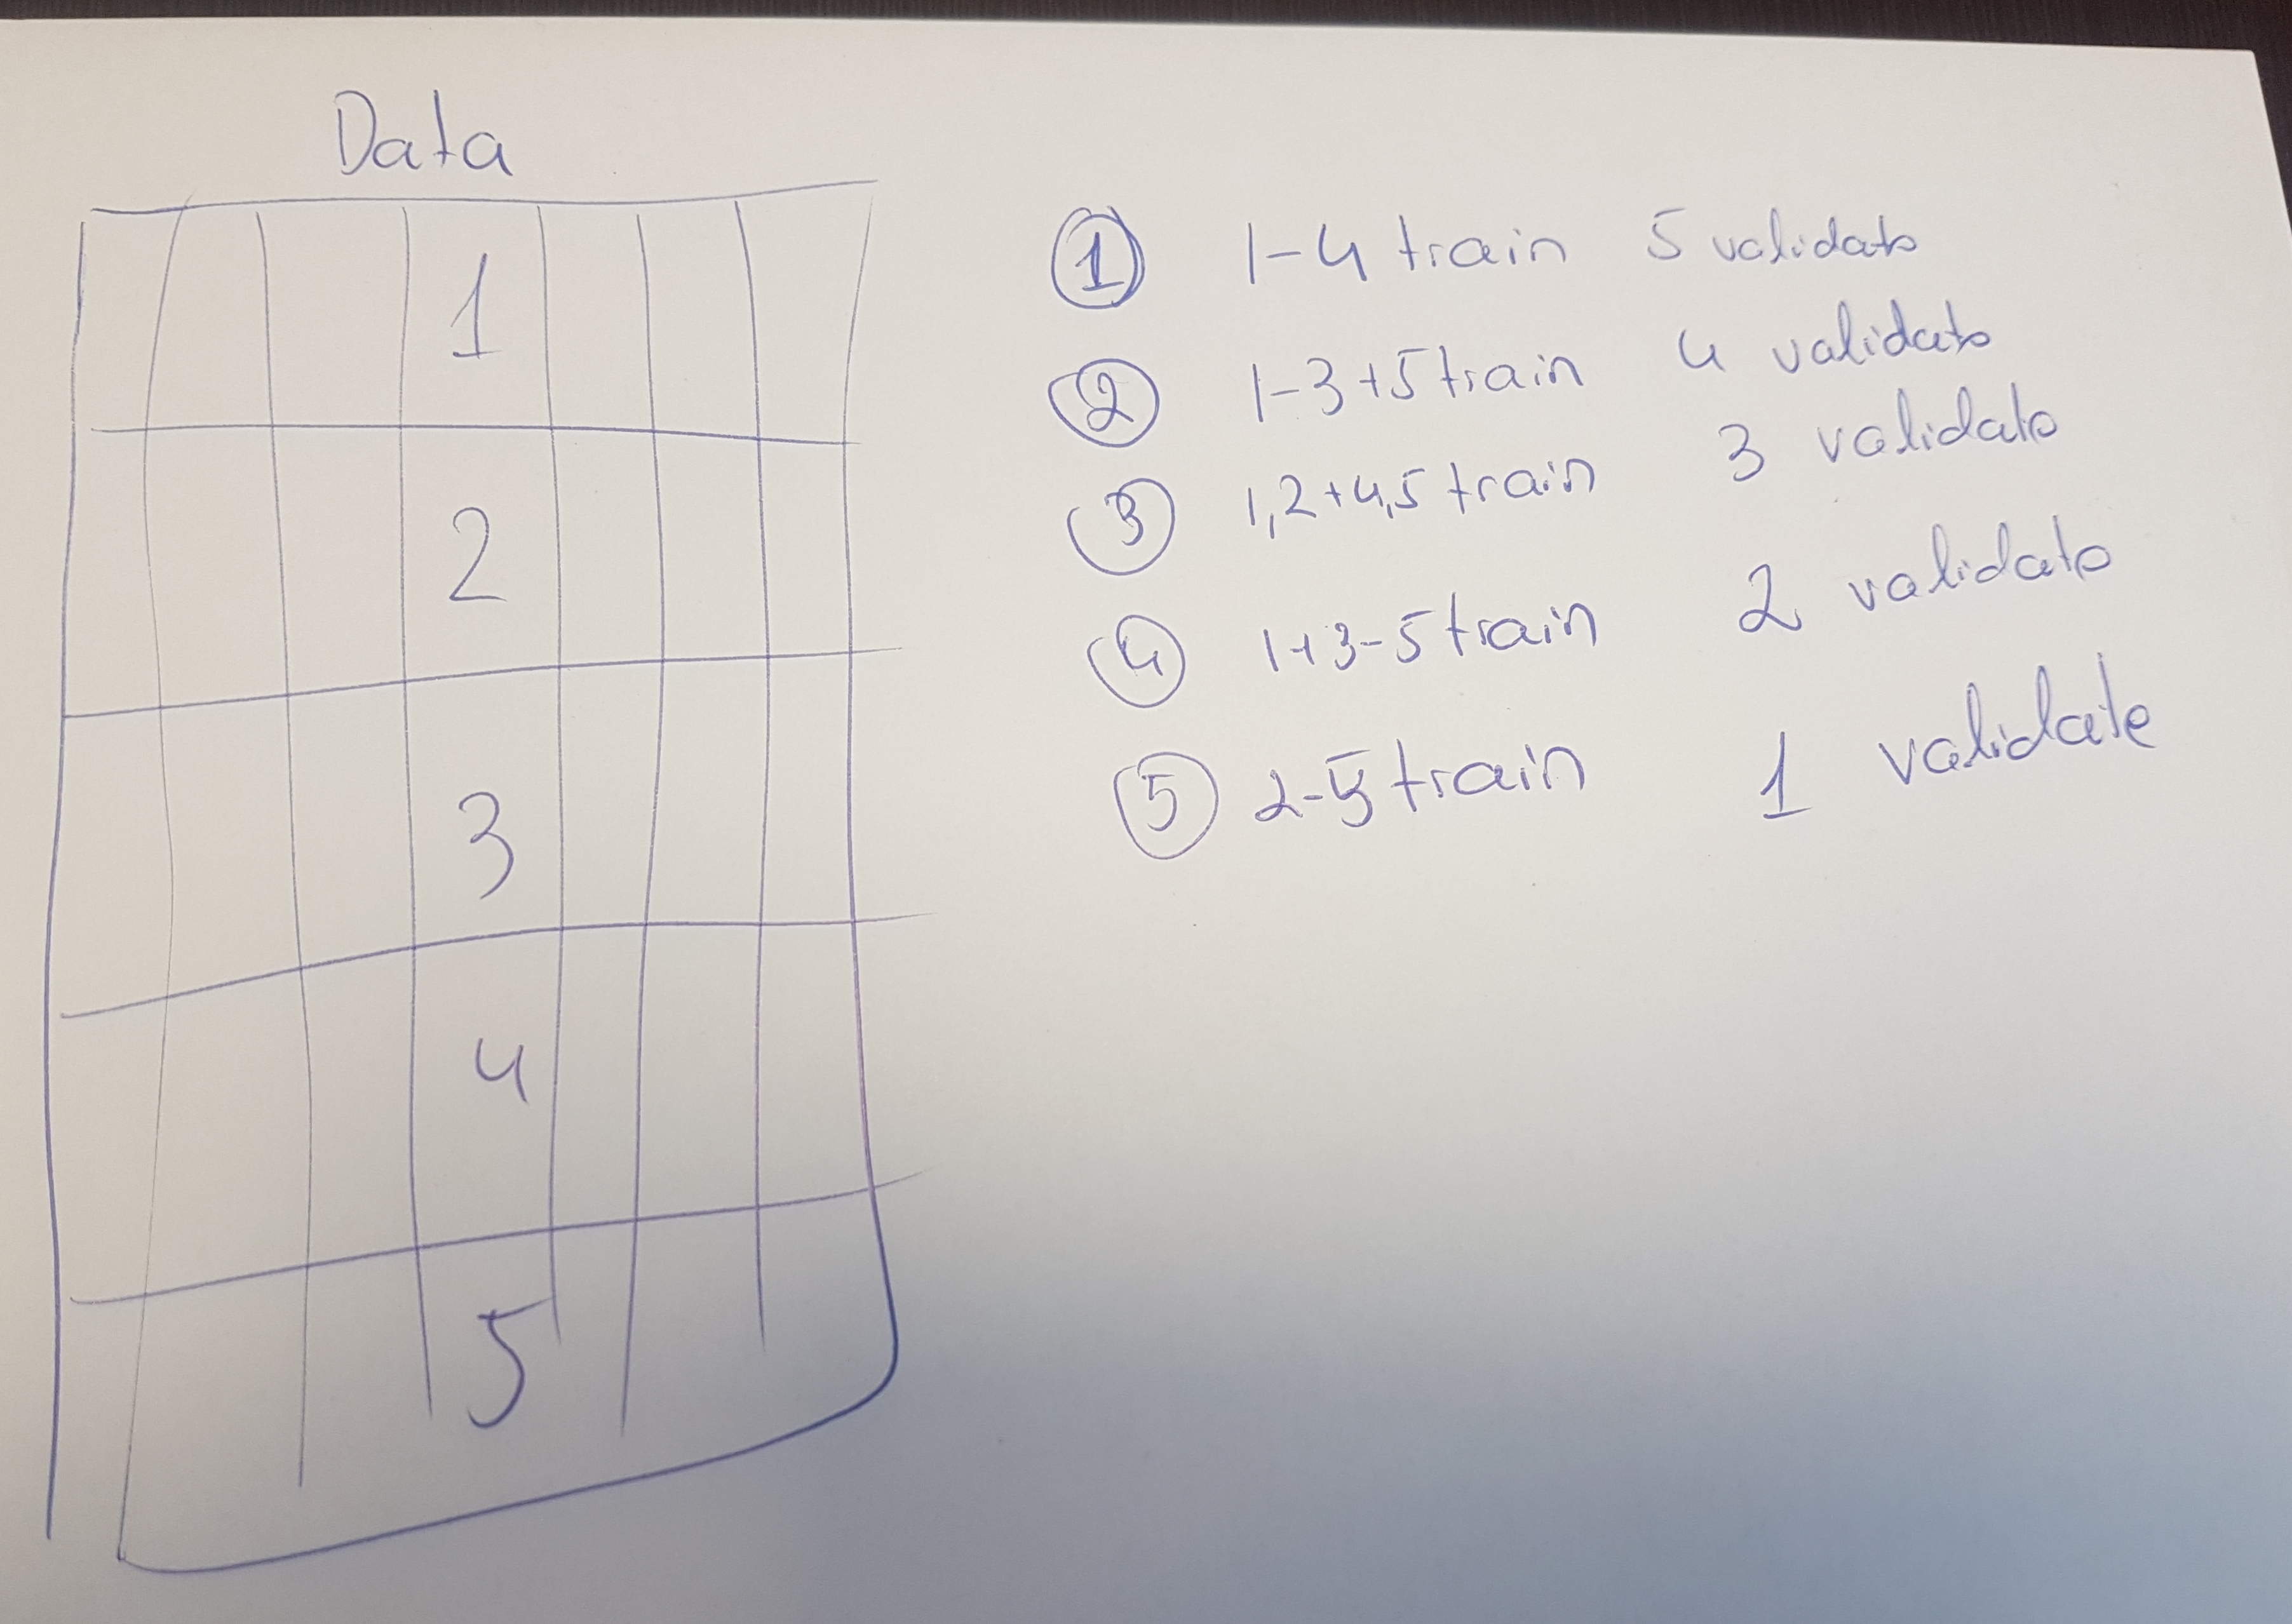 Data
1
2
3
4
5
1 1-4 train 5 validate
2 1-3+5 train 4 validate
3 1,2+4,5 train 3 validate
4 1+3-5 train 2 validate
5 2-5 train 1 validate